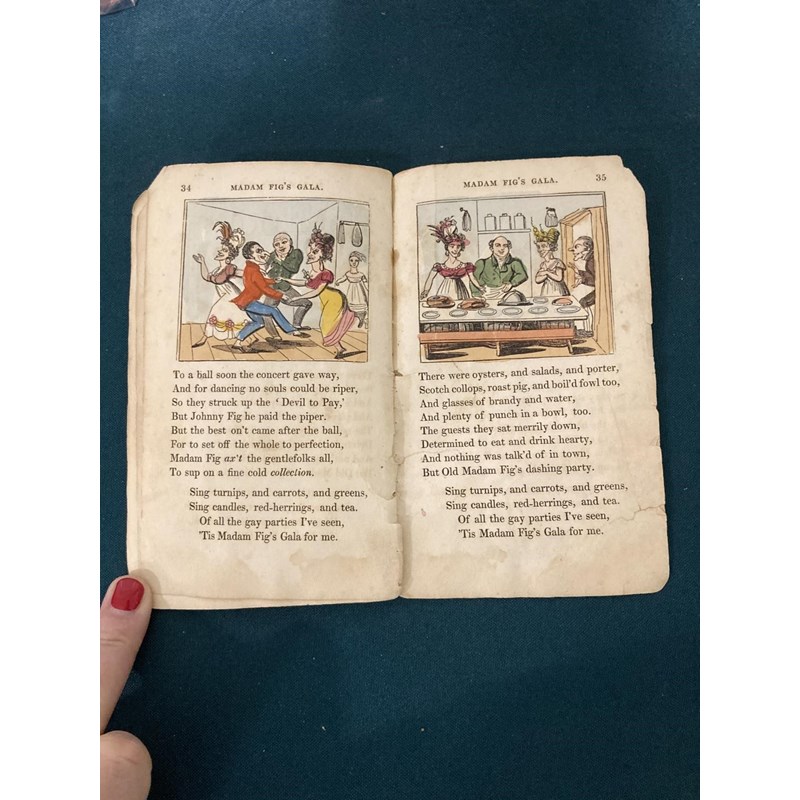 34
MADAM FIG'S GALA.
To a ball soon the concert gave way,
And for dancing no souls could be riper,
So they struck up the ‘Devil to Pay,’
But Johnny Fig he paid the piper.
But the best on't came after the ball,
For to set off the whole to perfection,
Madam Fig ax't the gentlefolks all,
To sup on a fine cold collection.
Sing turnips, and carrots, and greens,
Sing candles, red-herrings, and tea.
Of all the gay parties I've seen,
'Tis Madam Fig's Gala for me.
MADAM FIG'S GALA.
35
There were oysters, and salads, and porter,
Scotch collops, roast pig, and boil'd fowl too,
And glasses of brandy and water,
And plenty of punch in a bowl, too.
The guests they sat merrily down,
Determined to eat and drink hearty,
And nothing was talk'd of in town,
But Old Madam Fig's dashing party.
Sing turnips, and carrots, and greens,
Sing candles, red-herrings, and tea.
Of all the gay parties I've seen,
'Tis Madam Fig's Gala for me.